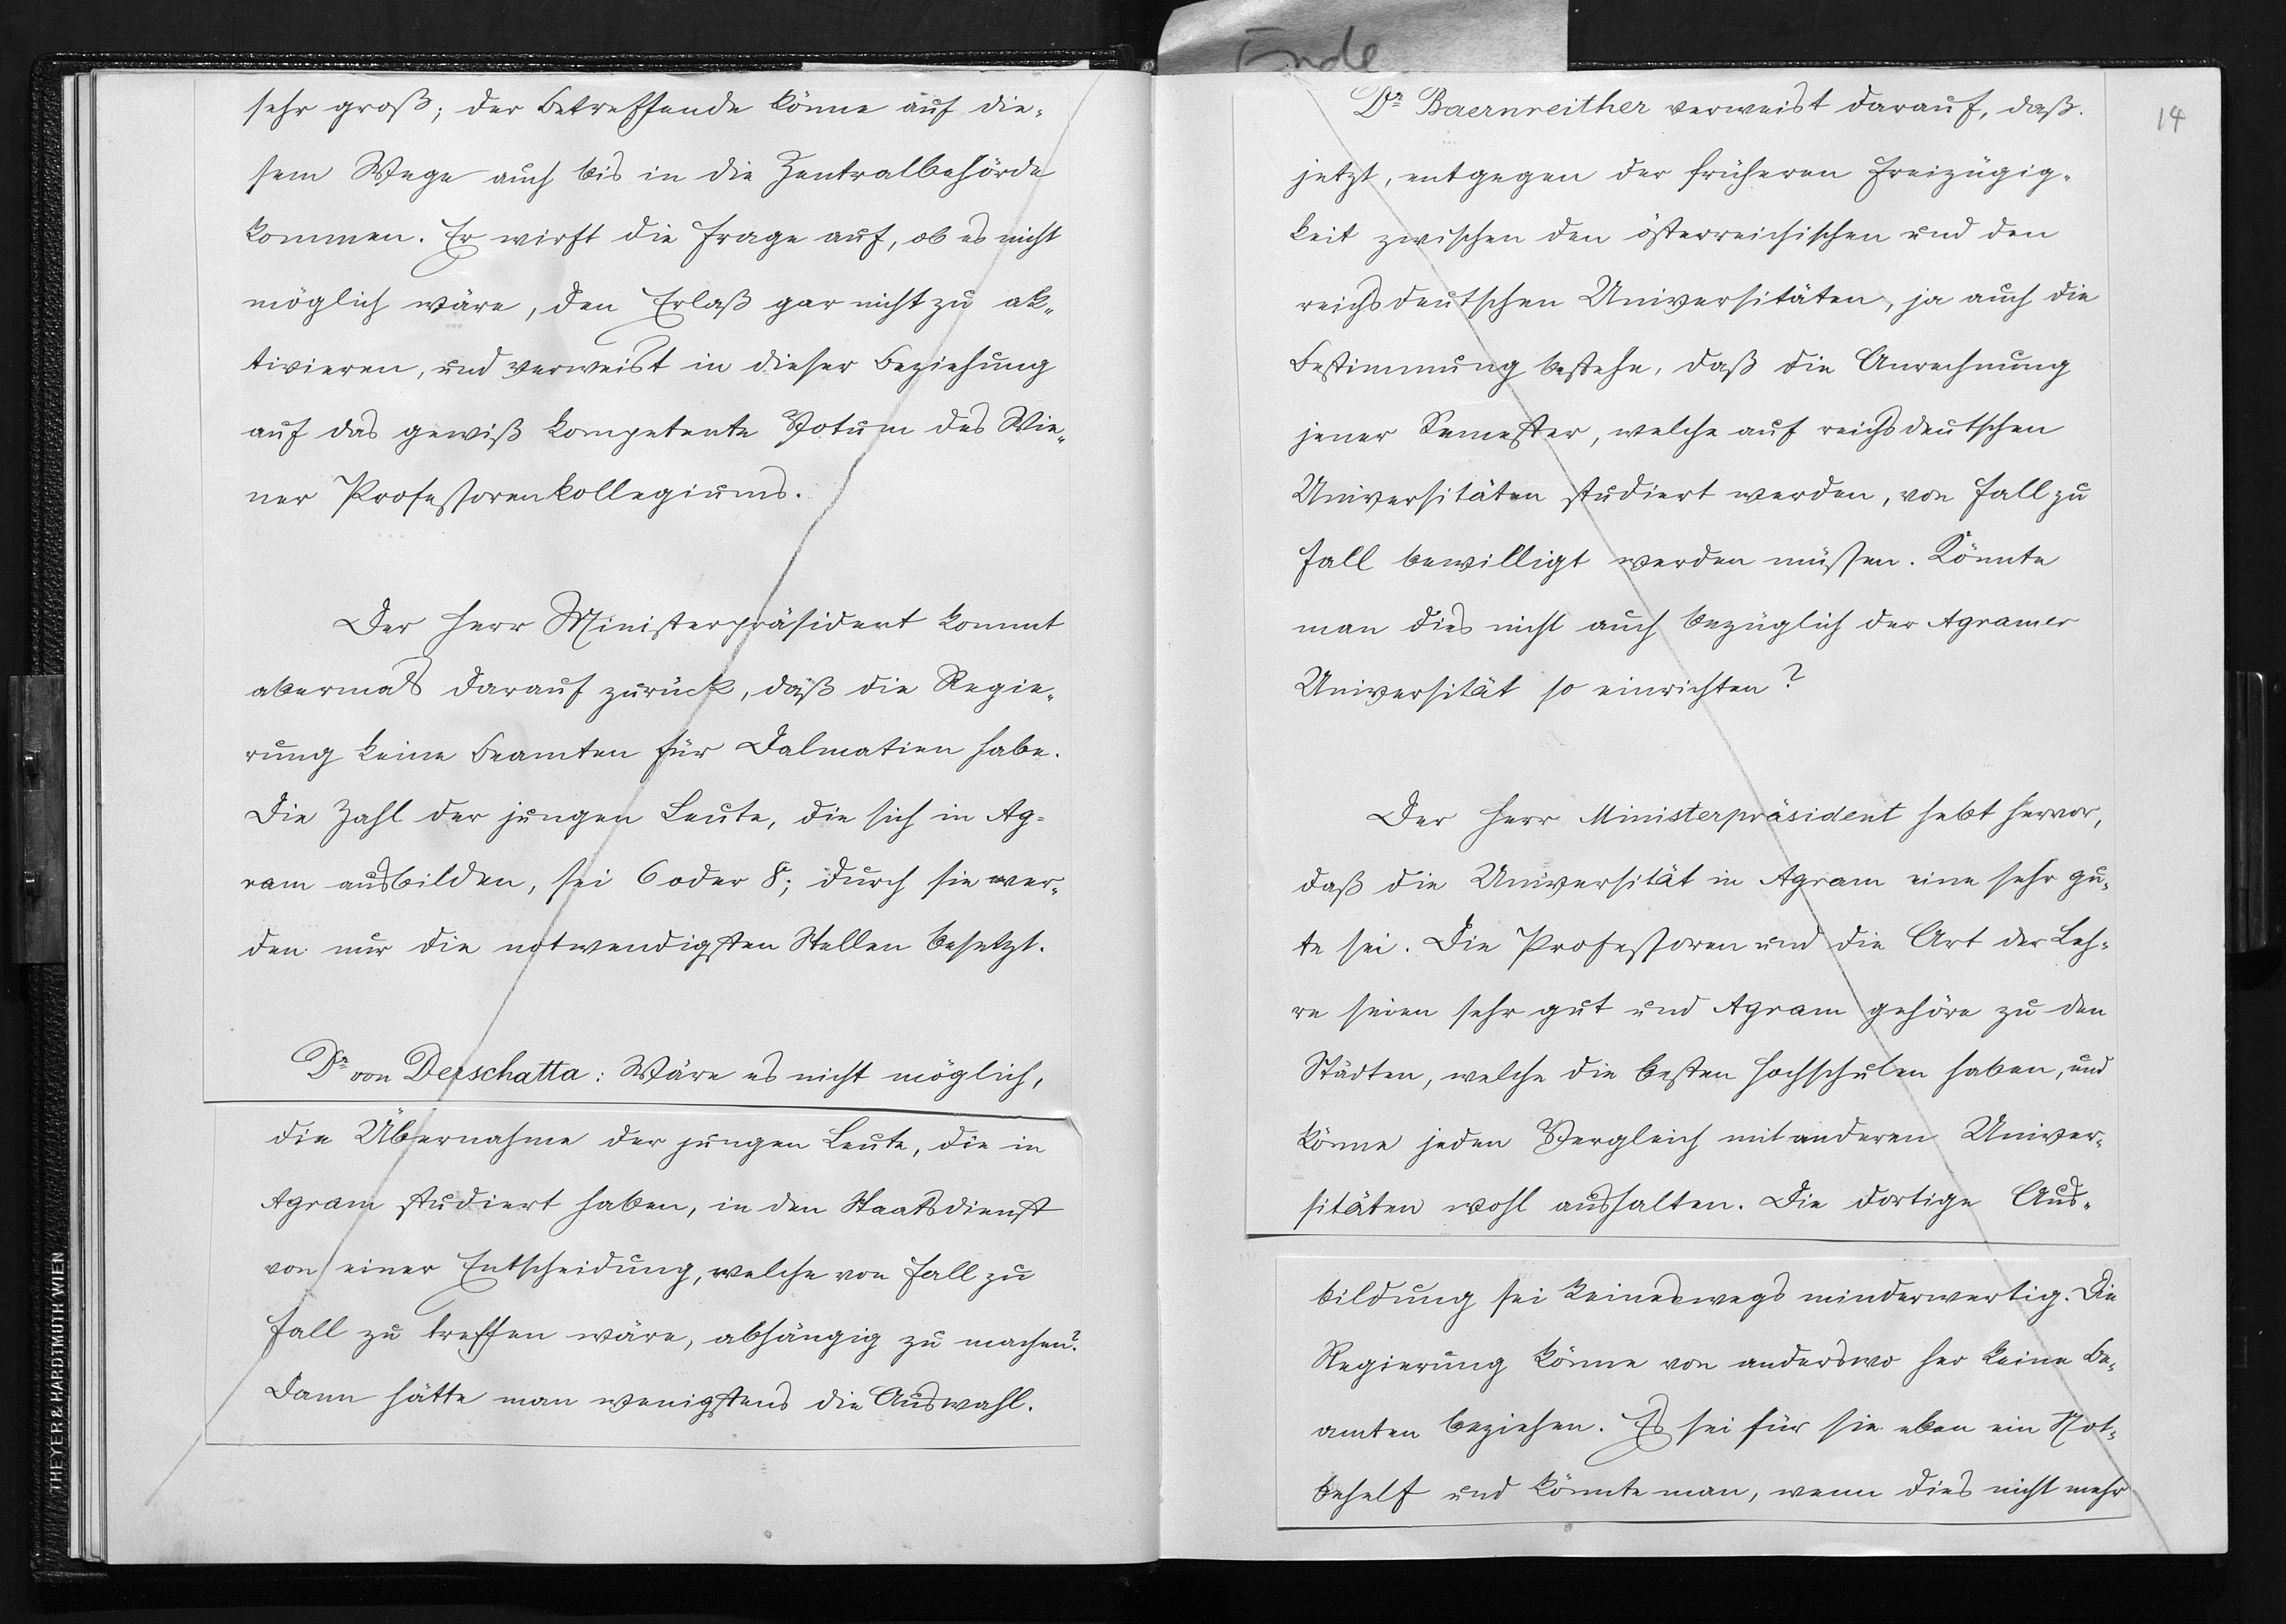 Ende
sehr groß; der Betreffende könne auf die-
sem Wege auch bis in die Zentralbehörde
kommen. Er wirft die Frage auf, ob es nicht
möglich wäre, den Erlaß gar nicht zu ak-
tivieren, und verweist in dieser Beziehung
auf das gewiß kompetente Votum des Wie-
ner Professorenkollegiums.
Der Herr Ministerpräsident kommt
abermals darauf zurück, daß die Regie-
rung keine Beamten für Dalmatien habe.
Die Zahl der jungen Leute, die sich in Ag-
ram ausbilden, sei 6 oder 8; durch sie wer-
den nur die notwendigsten Stellen besetzt.
Dr von Derschatta: Wäre es nicht möglich,
die Übernahme der jungen Leute, die in
Agram studiert haben, in den Staatsdienst
von einer Entscheidung, welche von Fall zu
Fall zu treffen wäre, abhängig zu machen?
Dann hätte man wenigstens die Auswahl.
THEYER & HARDTMUTH WIEN
14
Dr Baernreither verweist darauf, daß
jetzt, entgegen der früheren Freizügig-
keit zwischen den österreichischen und den
reichsdeutschen Universitäten, ja auch die
Bestimmung bestehe, daß die Anrechnung
jener Semester, welche auf reichsdeutschen
Universitäten studiert werden, von Fall zu
Fall bewilligt werden müssen. Könnte
man dies nicht auch bezüglich der Agramer
Universität so einrichten?
Der Herr Ministerpräsident hebt hervor,
daß die Universität in Agram eine sehr gu-
te sei. Die Professoren und die Art der Leh-
re seien sehr gut und Agram gehöre zu den
Städten, welche die besten Hochschulen haben, und
könne jeden Vergleich mit anderen Univer-
sitäten wohl aushalten. Die dortige Aus-
bildung sei keineswegs minderwertig. Die
Regierung könne von anderswo her keine Be-
amten beziehen. Es sei für sie eben ein Not-
behelf und könnte man, wenn dies nicht mehr